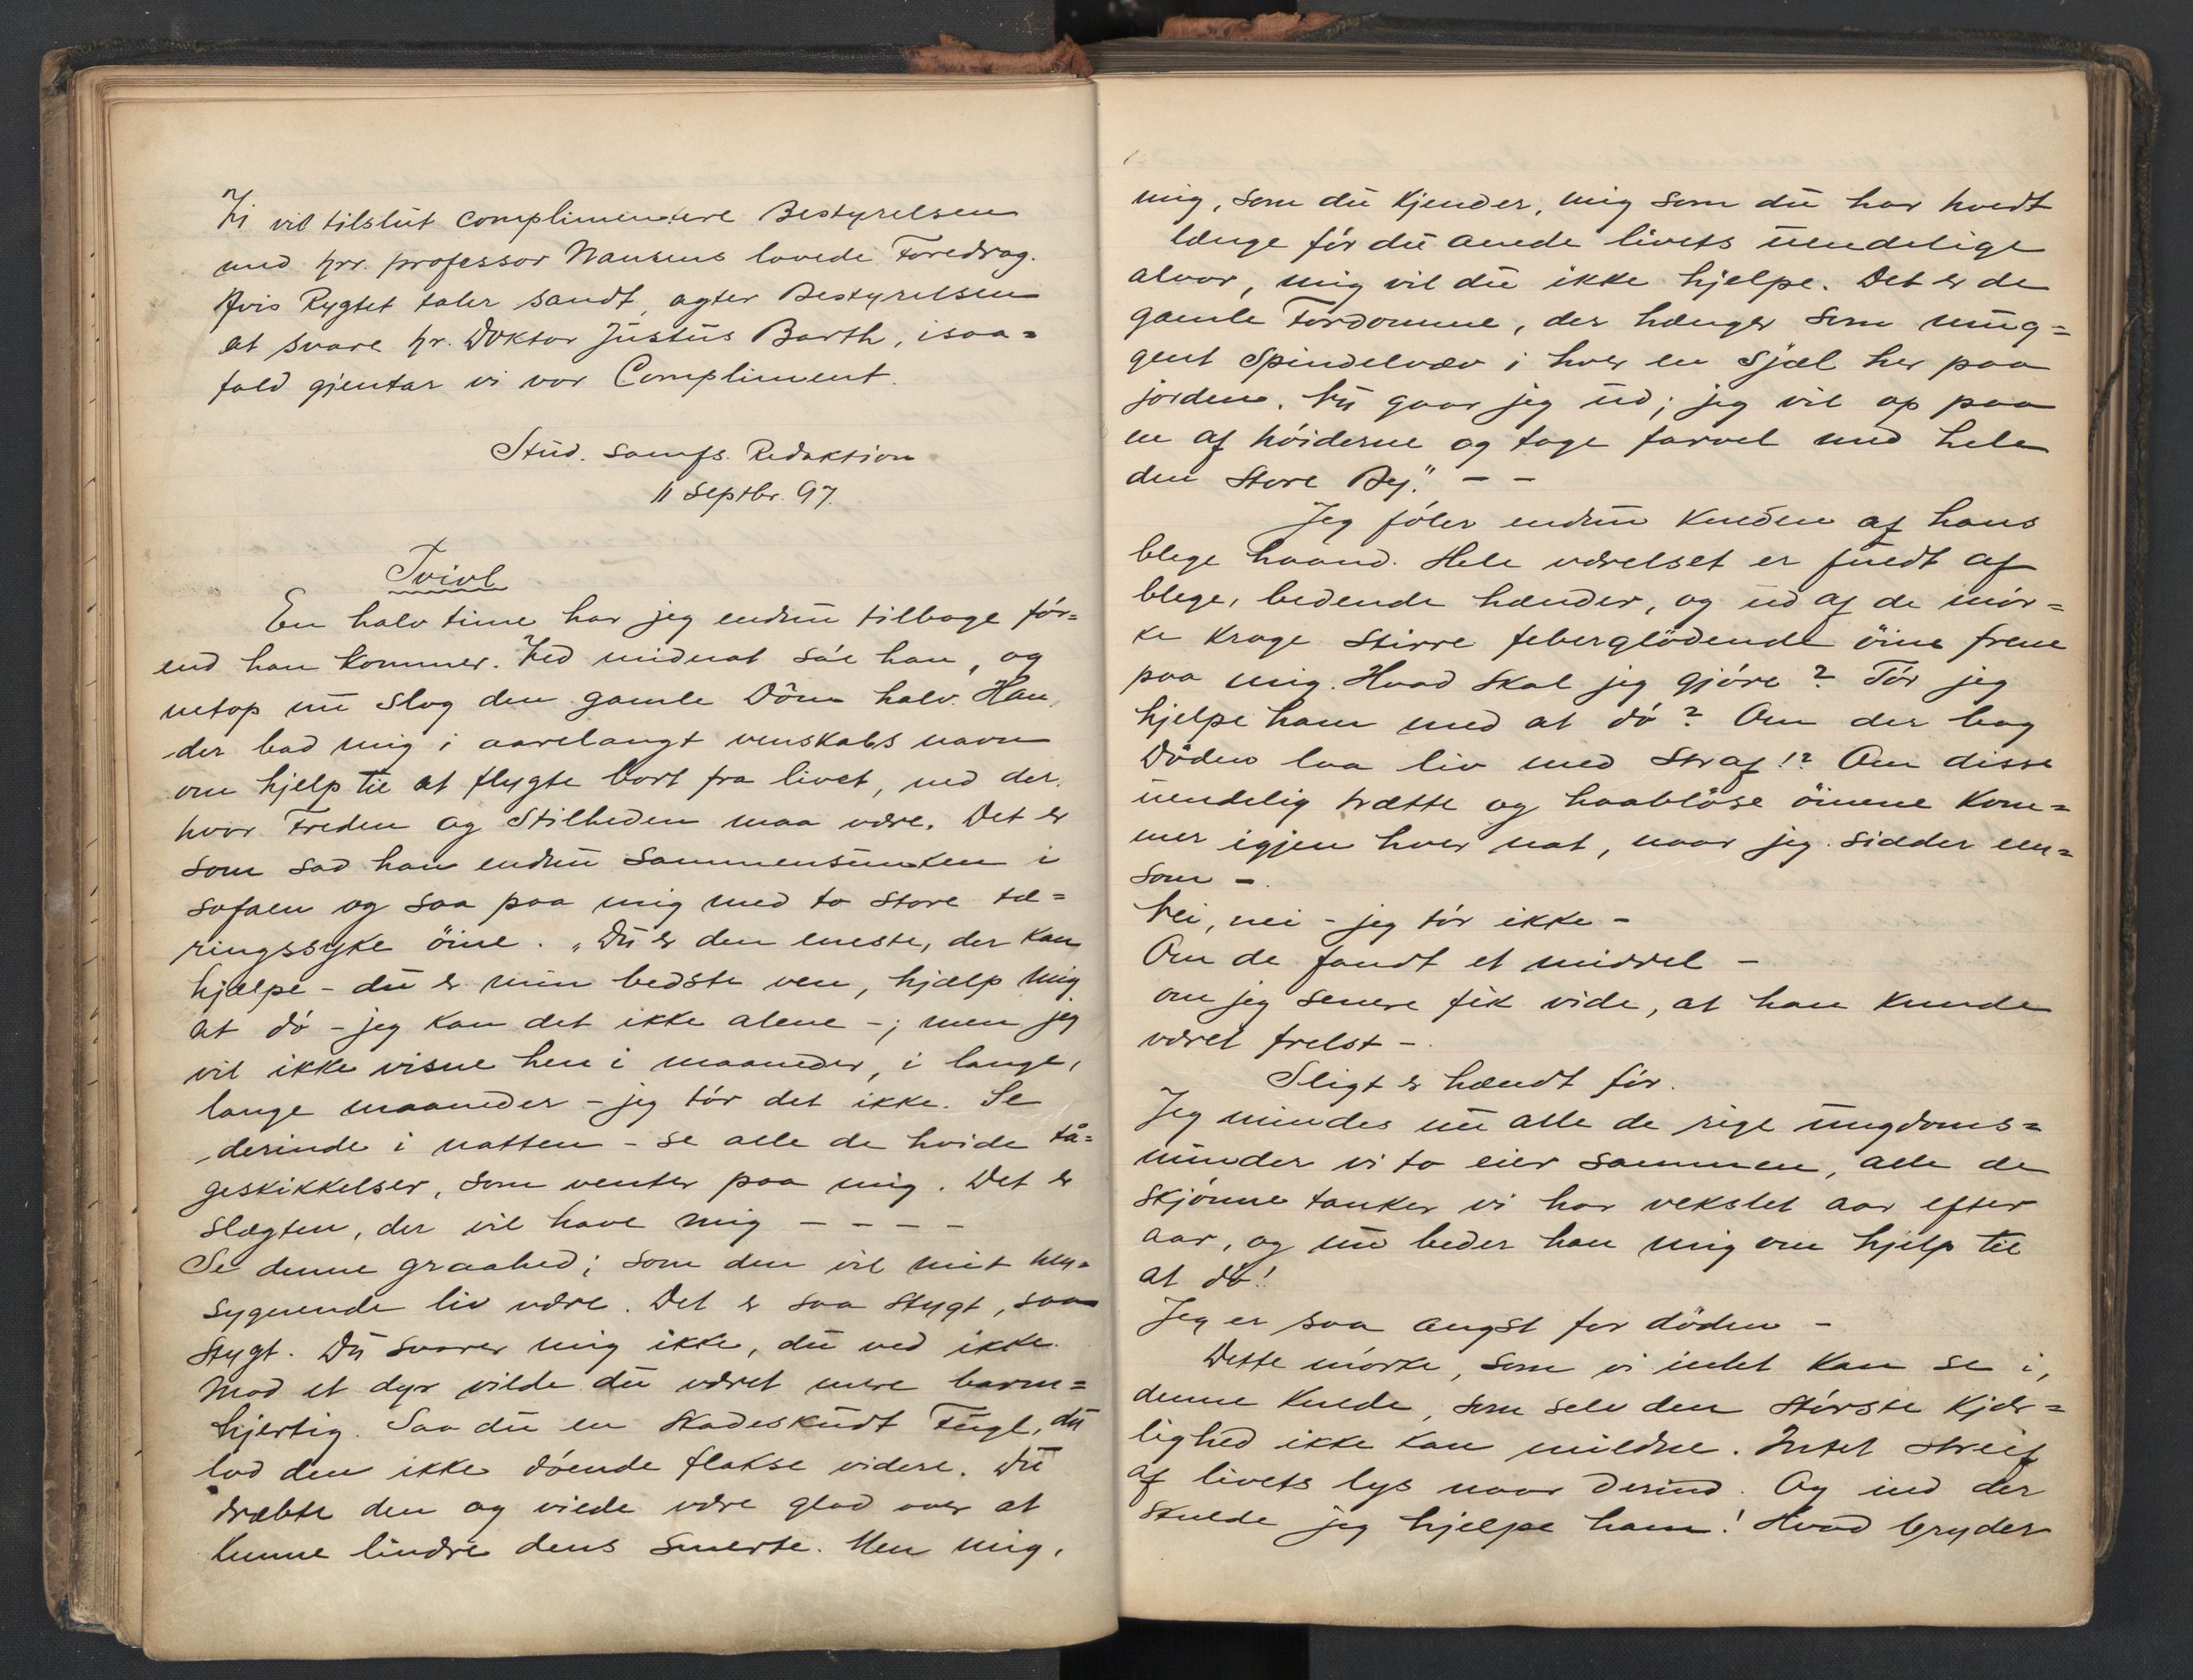 Vi vil tilslut complimentere Bestyrelsen
med hrr. professor Nansens lovede Foredrag.
Hvis Rygtet taler sandt, agter Bestyrelsen
at svare hr. Doktor Justus Barth, isaa=
fald gjentar vi vor Compliment.
Stud. samfs. Redaktion
11 Septbr. 97.
Tvivl
En halv time har jeg endnu tilbage før=
end han kommer. Ved midnat sa'e han, og
netop nu slog den gamle Dom halv. Han,
der bad mig i aarelangt venskabs navn
om hjelp til at flygte bort fra livet, ned der,
hvor Freden og Stilheden maa være. Det er
som sad han endnu sammensunken i
sofaen og saa paa mig med to store tæ=
ringssyke öine. „Du er den eneste, der kan
hjælpe - du er min bedste ven, hjælp mig
at dø - jeg kan det ikke alene -; men jeg
vil ikke visne hen i maaneder, i lange,
lange maaneder - jeg tør det ikke. Se
derinde i natten - se alle de hvide tå=
geskikkelser, som venter paa mig. Det er
slægten, der vil have mig - - - -
Se denne graahed; som den vil mit hen=
sygnende liv være. Det er saa stygt, saa
stygt. Du svarer mig ikke, du ved ikke.
Mod et dyr vilde du været mere barm=
hjertig. Saa du en skadeskudt Fugl, du
lod den ikke døende flakse videre. Du
dræbte den og vilde være glad over at
kunne lindre dens smerte. Men mig,
mig, som du kjender, mig som du har hvedt
længe før du anede livets uendelige
alvor, mig vil du ikke hjelpe. Det er de
gamle Fordomme, der hænger som mug=
gent Spindelvæv i hver en sjæl her paa
jorden. Nu gaar jeg ud; jeg vil op paa
en af höiderne og tage farvel med hele
den store By." - -
Jeg føler endnu kulden af hans
blege haand. Hele værelset er fuldt af
blege, bedende hænder, og ud af de mör=
ke kroge stirre feberglödende öine frem
paa mig. Hvad skal jeg gjöre? Tör jeg
hjelpe ham med at dö? Om der bag
Döden laa liv med Straf!? Om disse
uendelig trætte og haablöse öinene kom=
mer igjen hver nat, naar jeg sidder en=
som -.
Nei, nei - jeg tör ikke -
Om de fandt et middel -
om jeg senere fik vide, at han kunde
været frelst -.
Sligt er hændt för.
Jeg mindes nu alle de rige ungdoms=
minder vi to eier sammen, alle de
skjönne tanker vi har vekslet aar efter
aar, og nu beder han mig om hjelp til
at dö!
Jeg er saa angst for döden -
Dette mörke, som vi intet kan se i,
denne kulde, som selv den störste kjær=
lighed ikke kan mildne. Intet streif
af livets lys naar derind. Og ind der
skulde jeg hjelpe ham! Hvad bryder